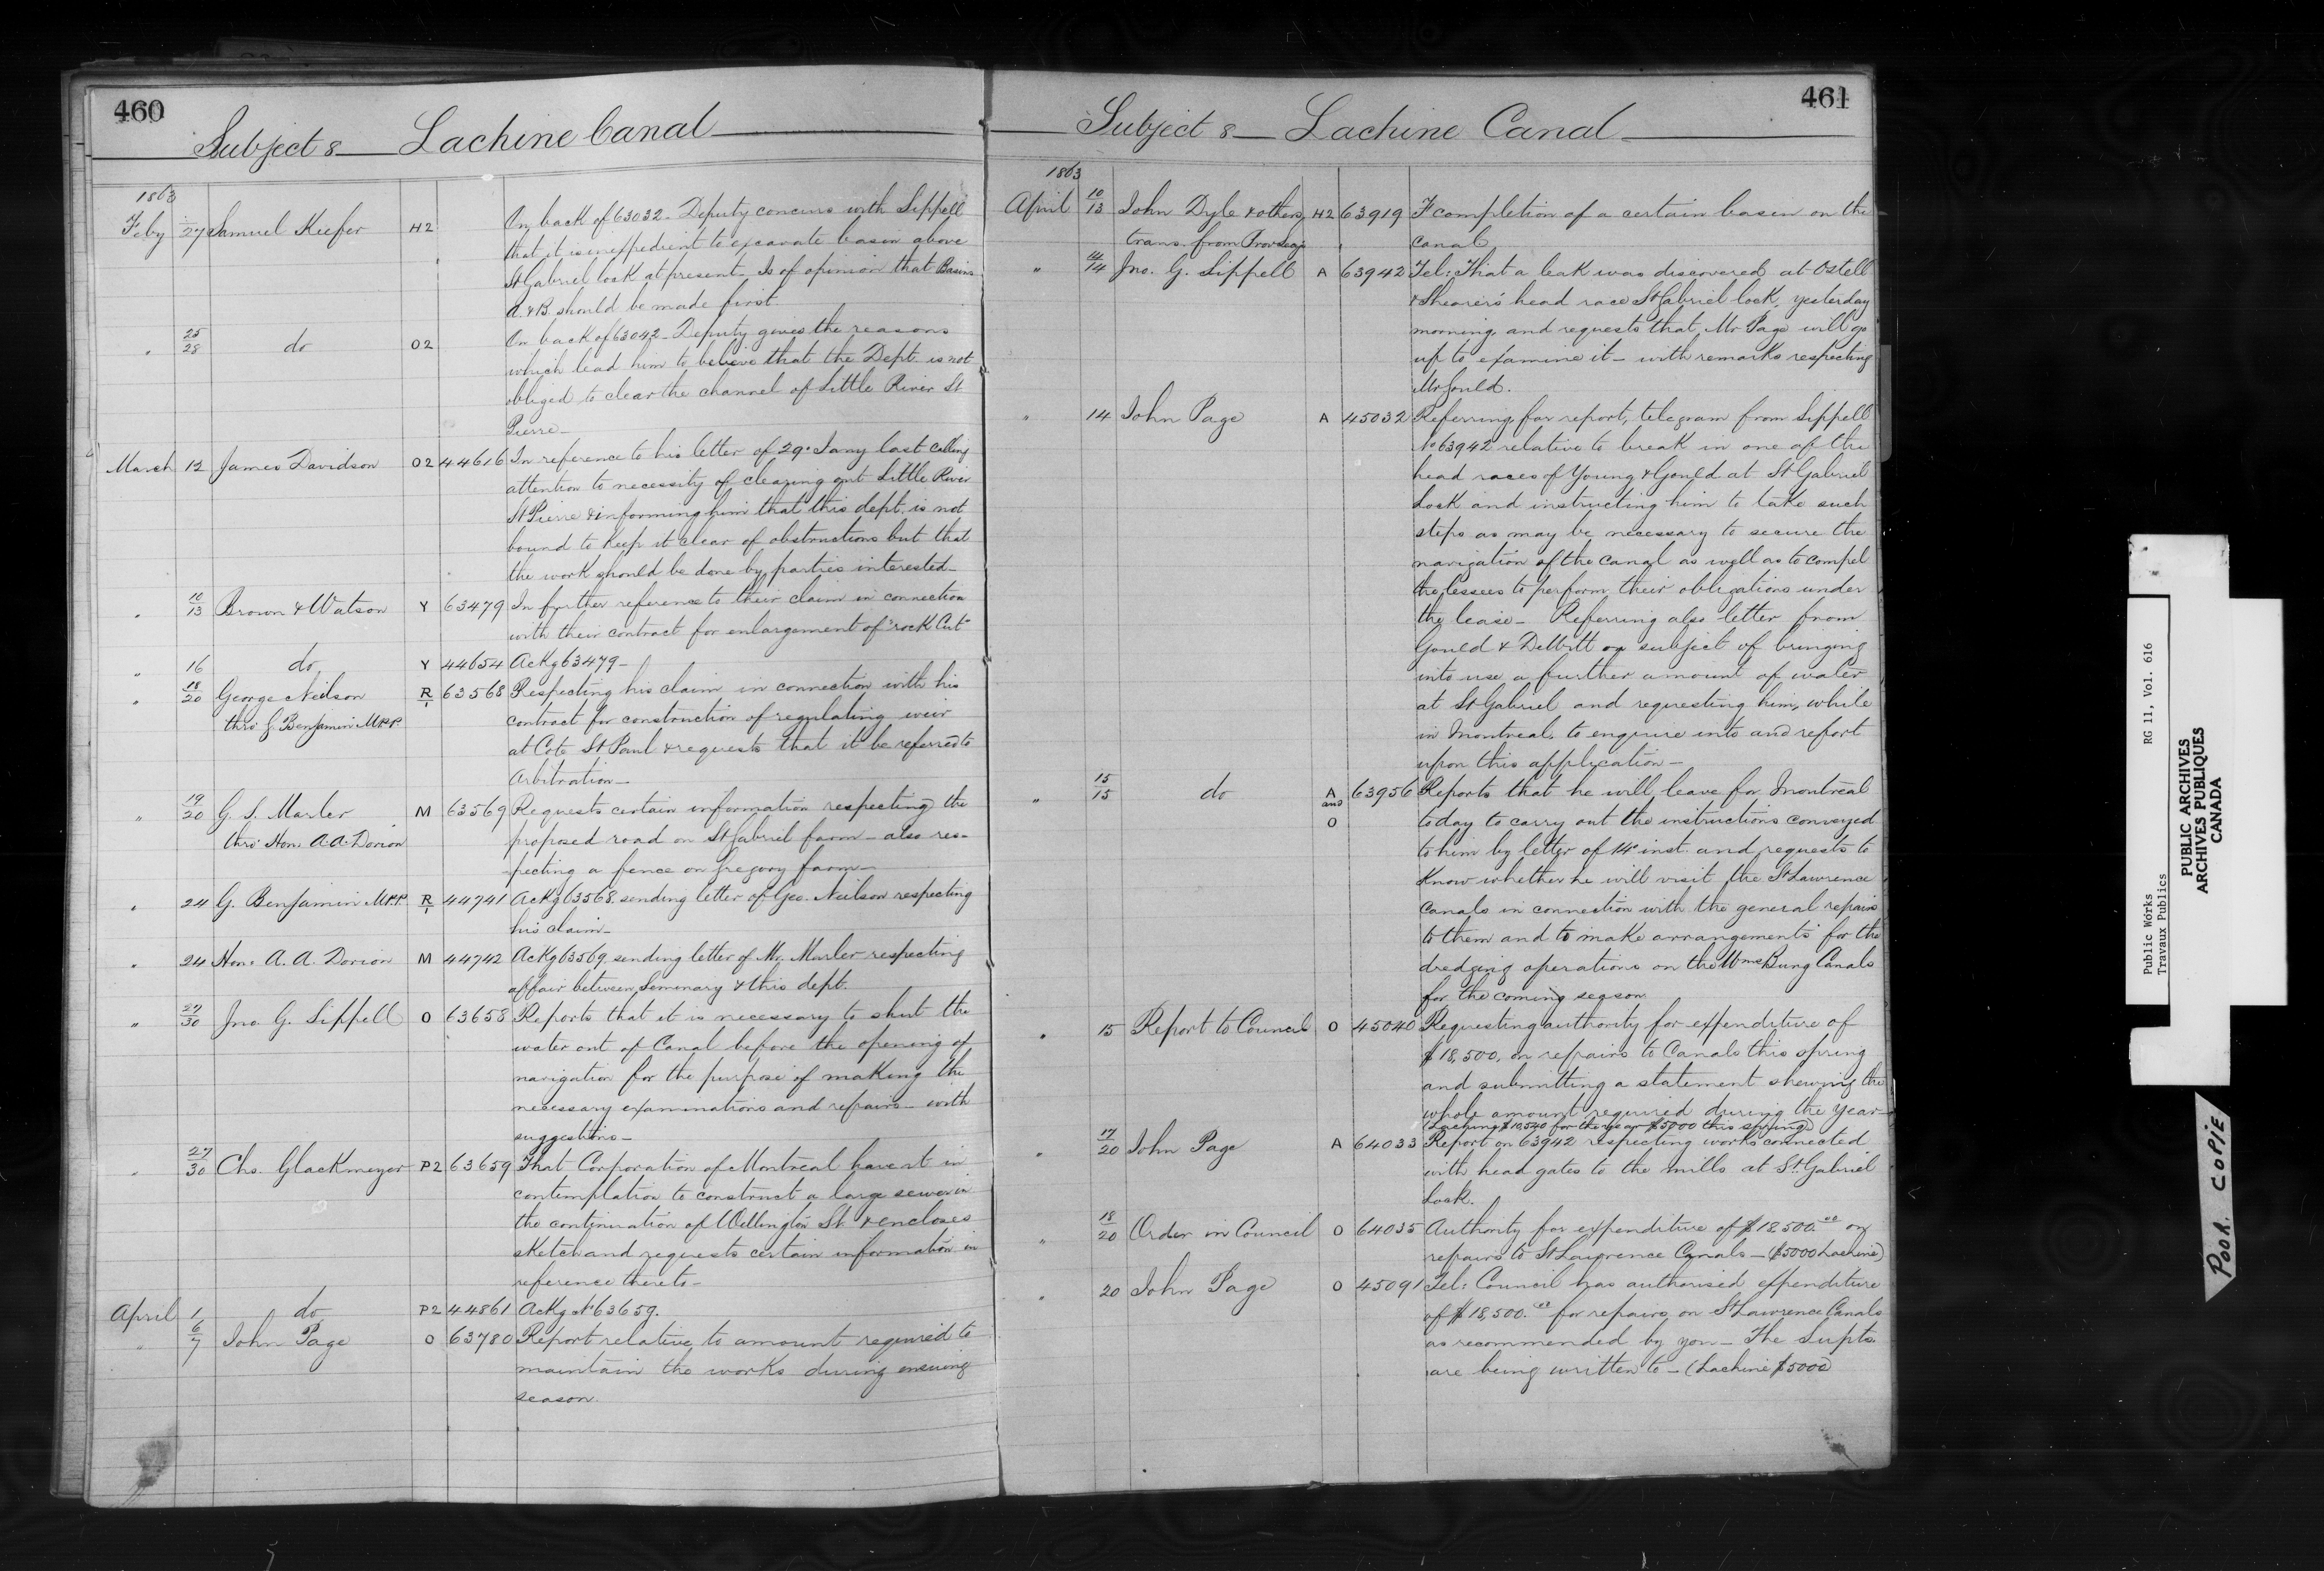 460
Subject 8 Lachine Canal
1863
Feby 27 Samuel Keefer H2 On back of 63032 - Deputy concurs with Sippell
that it is inexpedient to excavate basin above
St Gabriel lock at present - Is of opinion that Basins
A & B should be made first
" 25/28 do O2 On back of 63042 - Deputy gives the reasons
which lead him to believe that the Dept. is not
obliged to clear the channel of Little River St
Pierre -
March 12 James Davidson O2 44616 In reference to his letter of 29th Jany last calling
attention to necessity of clearing out Little River
St Pierre & informing him that this dept. is not
bound to keep it clear of obstructions but that
the work should be done by parties interested -
" 10/13 Brown & Watson Y 63479 In further reference to their claim in connection
with their contract for enlargement of "rock Cut"
" 16 do Y 44654 Ackg 63479 -
" 18/20 George Neilson R/1 63568 Respecting his claim in connection with his
thro' G. Benjamin M.P.P. contract for construction of regulating weir
at Cote St Paul & requests that it be referred to
Arbitration -
" 19/20 G. L. Marler M 63569 Requests certain information respecting the
thro' Hon. A. A. Dorion proposed road on St Gabriel farm - also res-
pecting a fence on Gregory farm -
" 24 G. Benjamin M.P.P. R/1 44741 Ackg 63568 sending letter of Geo. Neilson respecting
his claim -
" 24 Hon. A. A. Dorion M 44742 Ackg 63569 sending letter of Mr. Marler respecting
affair between Seminary & this dept.
" 27/30 Jno. G. Sippell O 63658 Reports that it is necessary to shut the
water out of Canal before the opening of
navigation for the purpose of making the
necessary examinations and repairs - with
suggestions -
" 27/30 Chs. Glackmeyer P2 63659 That Corporation of Montreal have it in
contemplation to construct a large sewer in
the continuation of Wellington St. & encloses
sketch and requests certain information in
reference thereto -
April 1 do P2 44861 Ackg No 63659.
" 6/7 John Page O 63780 Report relative to amount required to
maintain the works during ensuing
season.
461
Subject 8 Lachine Canal
1863
April 10/13 John Dyle & others, H2 63919 F completion of a certain basin on the
trans. from canal
" 14/14 Jno. G. Sippell A 63942 Tel: That a leak was discovered at Ostell
& Shearer's head race St Gabriel lock, yesterday
morning and requests that Mr Page will go
up to examine it - with remarks respecting
Mr Gould.
" 14 John Page A 45032 Referring for report, telegram from Sippell
No 63942 relative to break in one of the
head races of Young & Gould at St Gabriel
Lock and instructing him to take such
steps as may be necessary to secure the
navigation of the canal as well as to compel
the lessees to perform their obligations under
the lease - Referring also letter from
Gould & DeWitt on subject of bringing
into use a further amount of water
at St Gabriel and requesting him, while
in Montreal, to enquire into and report
upon this application -
" 15/15 do A and O 63956 Reports that he will leave for Montreal
today to carry out the instructions conveyed
to him by letter of 14th inst. and requests to
know whether he will visit the St Lawrence
Canals in connection with the general repairs
to them and to make arrangements for the
dredging operations on the WmsBurg Canals
for the coming season
" 15 Report to Council O 45040 Requesting authority for expenditure of
$18,500, on repairs to Canals this spring
and submitting a statement shewing the
whole amount required during the year -
(Lachine $10,540 for the year $5000 this spring)
" 17/20 John Page A 64033 Report on 63942 respecting works connected
with head gates to the mills at St. Gabriel
Lock.
" 18/20 Order in Council O 64035 Authority for expenditure of $18,500.00 on
repairs to St Lawrence Canals - ($5000 Lachine)
" 20 John Page O 45091 Tel: Council has authorised expenditure
of $18,500.00 for repairs on St Lawrence Canals
as recommended by you - The Supts.
are being written to - (Lachine $5000)
Public Works RG 11, Vol. 616
Travaux Publics
PUBLIC ARCHIVES
ARCHIVES PUBLIQUES
CANADA
POOR COPIE